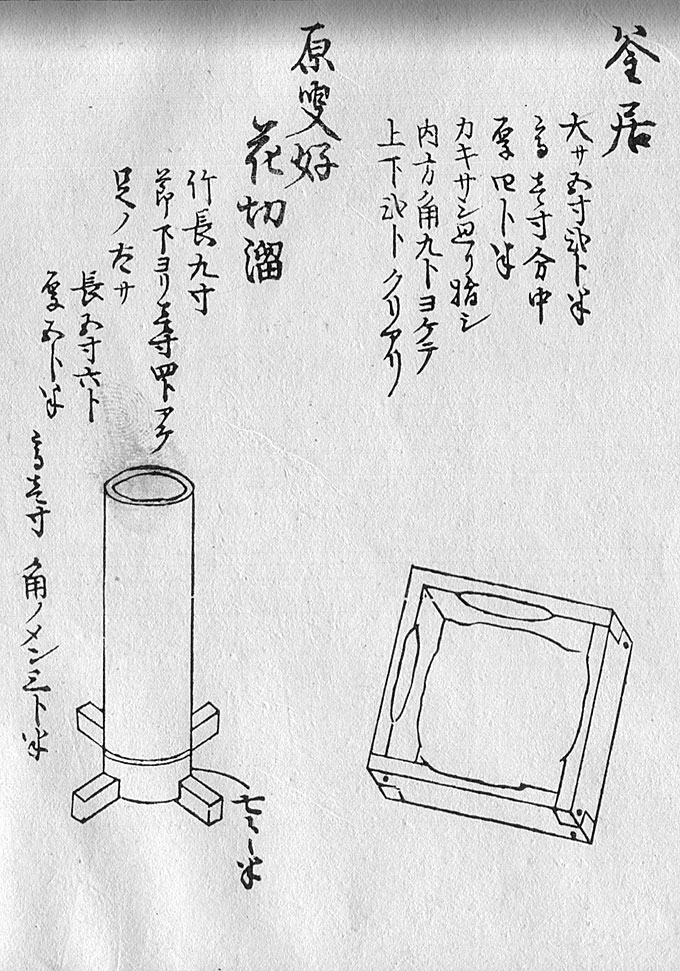 釜居
大サ五寸弐卜半
高サ壱寸分中
厚四卜半
カキサシ廻リ指シ
内方ノ角九卜ヨケテ
上下弐卜クリアリ
原叟好
花切溜
竹長九寸
節下ヨリ壱寸四卜アケ
足ノ大サ
長五寸六卜
厚五卜半
高壱寸 角ノメン三卜半